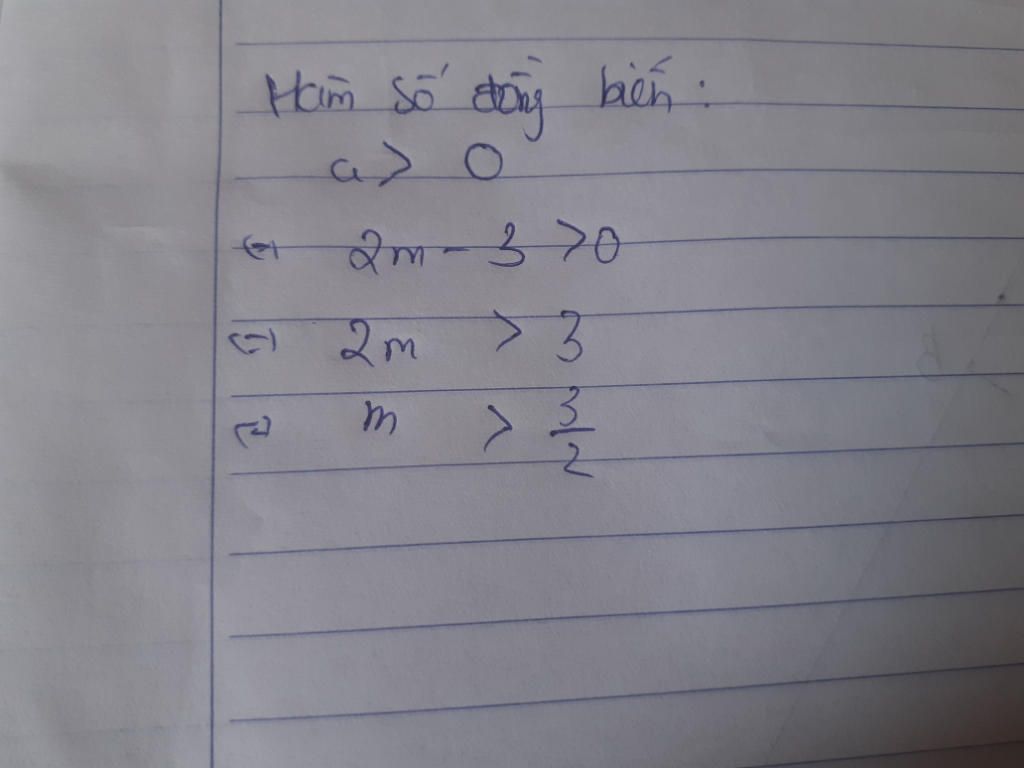 Hàm số đồng biến :
a > 0
⇔ 2m - 3 > 0
⇔ 2m > 3
⇔ m > 3/2